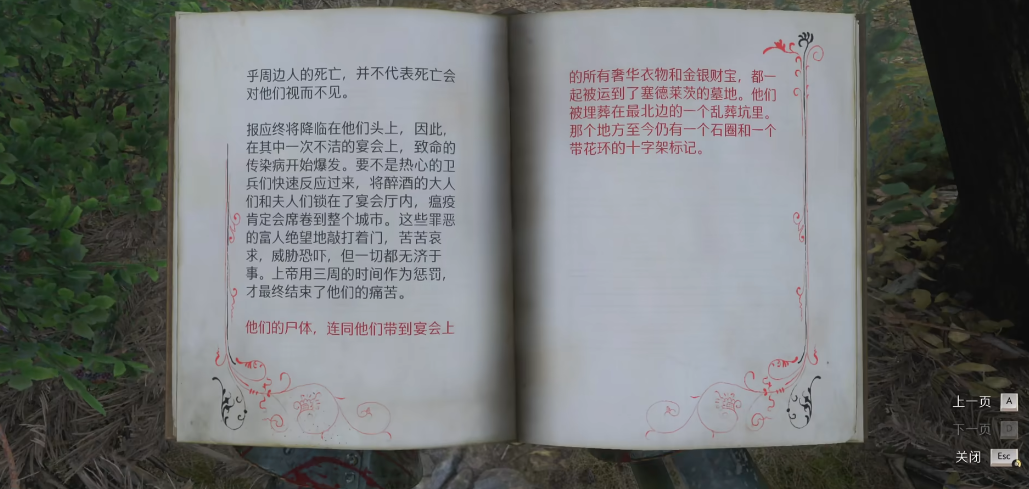 乎周边人的死亡，并不代表死亡会
对他们视而不见。
报应终将降临在他们头上，因此，
在其中一次不洁的宴会上，致命的
传染病开始爆发。要不是热心的卫
兵们快速反应过来，将醉酒的大人
们和夫人们锁在了宴会厅内，瘟疫
肯定会席卷到整个城市。这些罪恶
的富人绝望地敲打着门，苦苦哀
求，威胁恐吓，但一切都无济于
事。上帝用三周的时间作为惩罚，
才最终结束了他们的痛苦。
他们的尸体，连同他们带到宴会上
的所有奢华衣物和金银财宝，都一
起被运到了塞德莱茨的墓地。他们
被埋葬在最北边的一个乱葬坑里。
那个地方至今仍有一个石圈和一个
带花环的十字架标记。
上一页 A
下一页 D
关闭 Esc